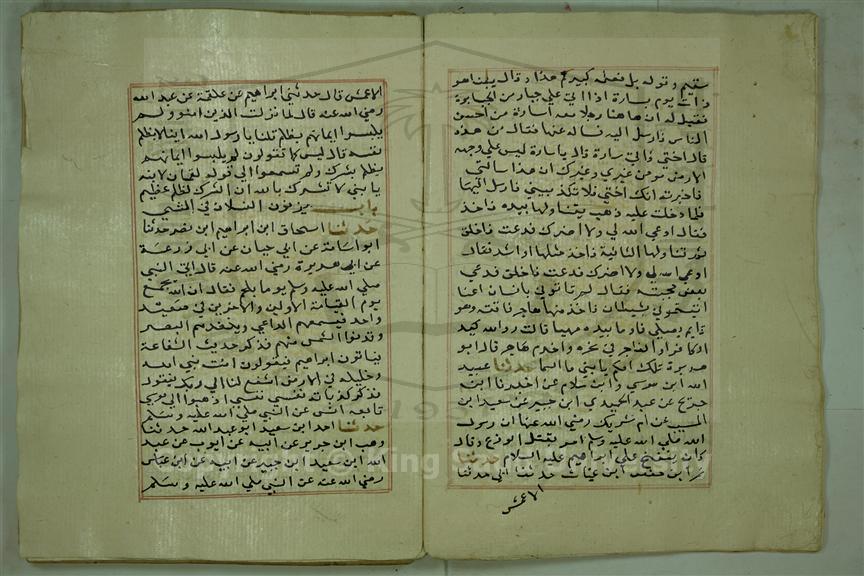 سقيم وقوله بل فعله كبيرهم هذا وقال بينا هو
ذات يوم بسارة اذا اتى علي جبار من الجبابرة
فقيل له ان هاهنا رجلا معه امرأة من احسن
الناس فارسل اليه فساله عنها فقال من هذه
قال اختي فاتى سارة قال يا سارة ليس علي وجه
الارض مومن غيري وغيرك ان هذا سالني
فاخبرته انك اختي فلا تكذبيني فارسل اليها
فلما دخلت عليه ذهب يتناولها بيده فاخذ
فقال ادعي الله لي ولا اضرك فدعت فاطلق
ثم تناولها الثانية فاخذ مثلها او اشد فقال
ادعي الله لي ولا اضرك فدعت فاطلق فدعي
بعض حجبته فقال لم تاتوني بانسان انما
اتيتموني بشيطان فاخذ منها هاجر فاتته وهو
قايم يصلي فاومأ بيده مهيا قالت رد الله كيد
الكافر او الفاجر في نحره واخدم هاجر قال ابو
هريرة تلك امكم يا بني ما السما حدثنا عبيد
الله ابن موسي وابن سلام عن اخبرنا ابن
جريج عن عبد الحميد ابن جبير عن سعيد ابن
المسيب عن ام شريك رضي الله عنها ان رسول
الله صلي الله عليه وسلم امر بقتل الوزغ وقال
كان ينفخ علي ابراهيم عليه السلام حدثنا
عمر ابن حفص ابن غياث حدثنا ابي حدثنا
الاعمش
الاعمش قال حدثني ابراهيم عن علقمة عن عبد الله
رضي الله عنه قال لما نزلت الذين امنوا ولم
يلبسوا ايمانهم بظلم قلنا يا رسول الله اينا لا يظلم
نفسه قال ليس كما تقولون لم يلبسوا ايمانهم
بظلم بشرك ولم تسمعوا الي قوله لقمان لابنه
يا بني لا تشرك بالله ان الشرك لظلم عظيم
باب يزفون النسلان في المشي
حدثنا اسحاق ابن ابراهيم ابن نصر حدثنا
ابو اسامة عن ابي حيان عن ابي زرعة
عن ابي هريرة رضي الله عنه قال اتي النبي
صلي الله عليه وسلم يوما بلحم فقال ان الله يجمع
يوم القيامة الاولين والاخرين في صعيد
واحد فيسمعهم الداعي وينفذهم البصر
وتدنوا الشمس منهم فذكر حديث الشفاعة
فياتون ابراهيم فيقولون انت نبي الله
وخليله في الارض اشفع لنا الي ربك فيقول
فذكر كذباته نفسي نفسي اذهبوا الي موسي
تابعه انس عن النبي صلي الله عليه وسلم
حدثنا احد ابن سعيد ابو عبد الله حدثنا
وهب ابن جرير عن ابيه عن ايوب عن عبد
الله ابن سعيد ابن جبير عن ابيه عن ابن عباس
رضي الله عنه عن النبي صلي الله عليه وسلم